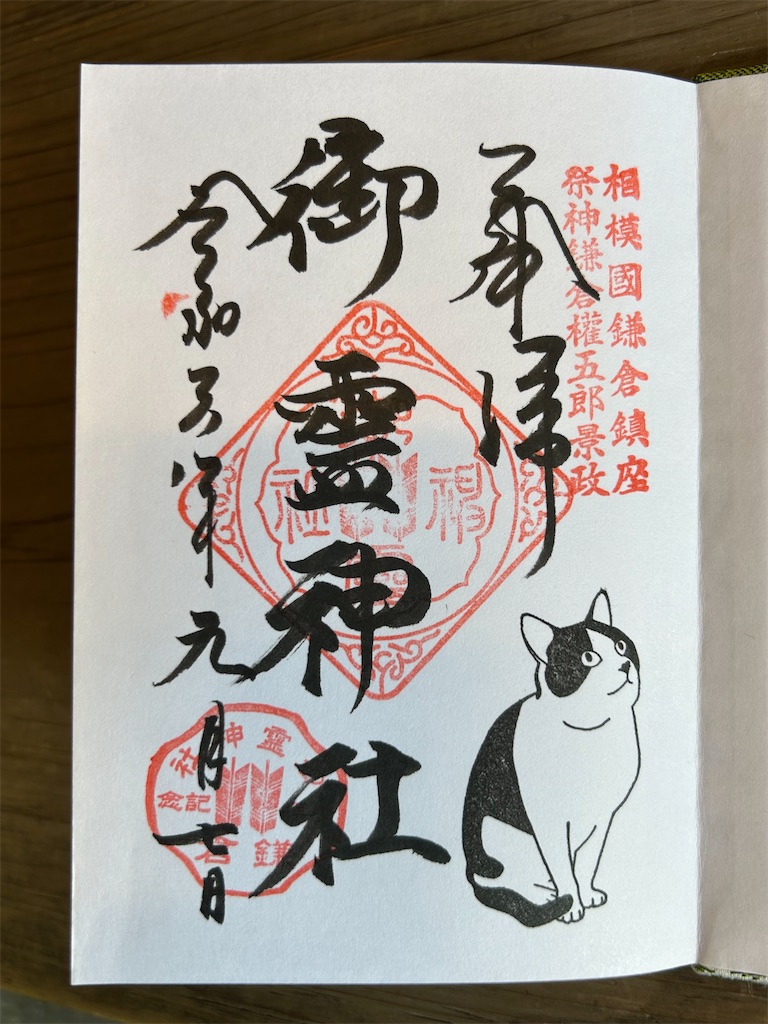 相模國鎌倉鎮座
祭神鎌倉權五郎景政
奉拝
御霊神社
令和 年元月七日
靈神社
記念
鎌倉